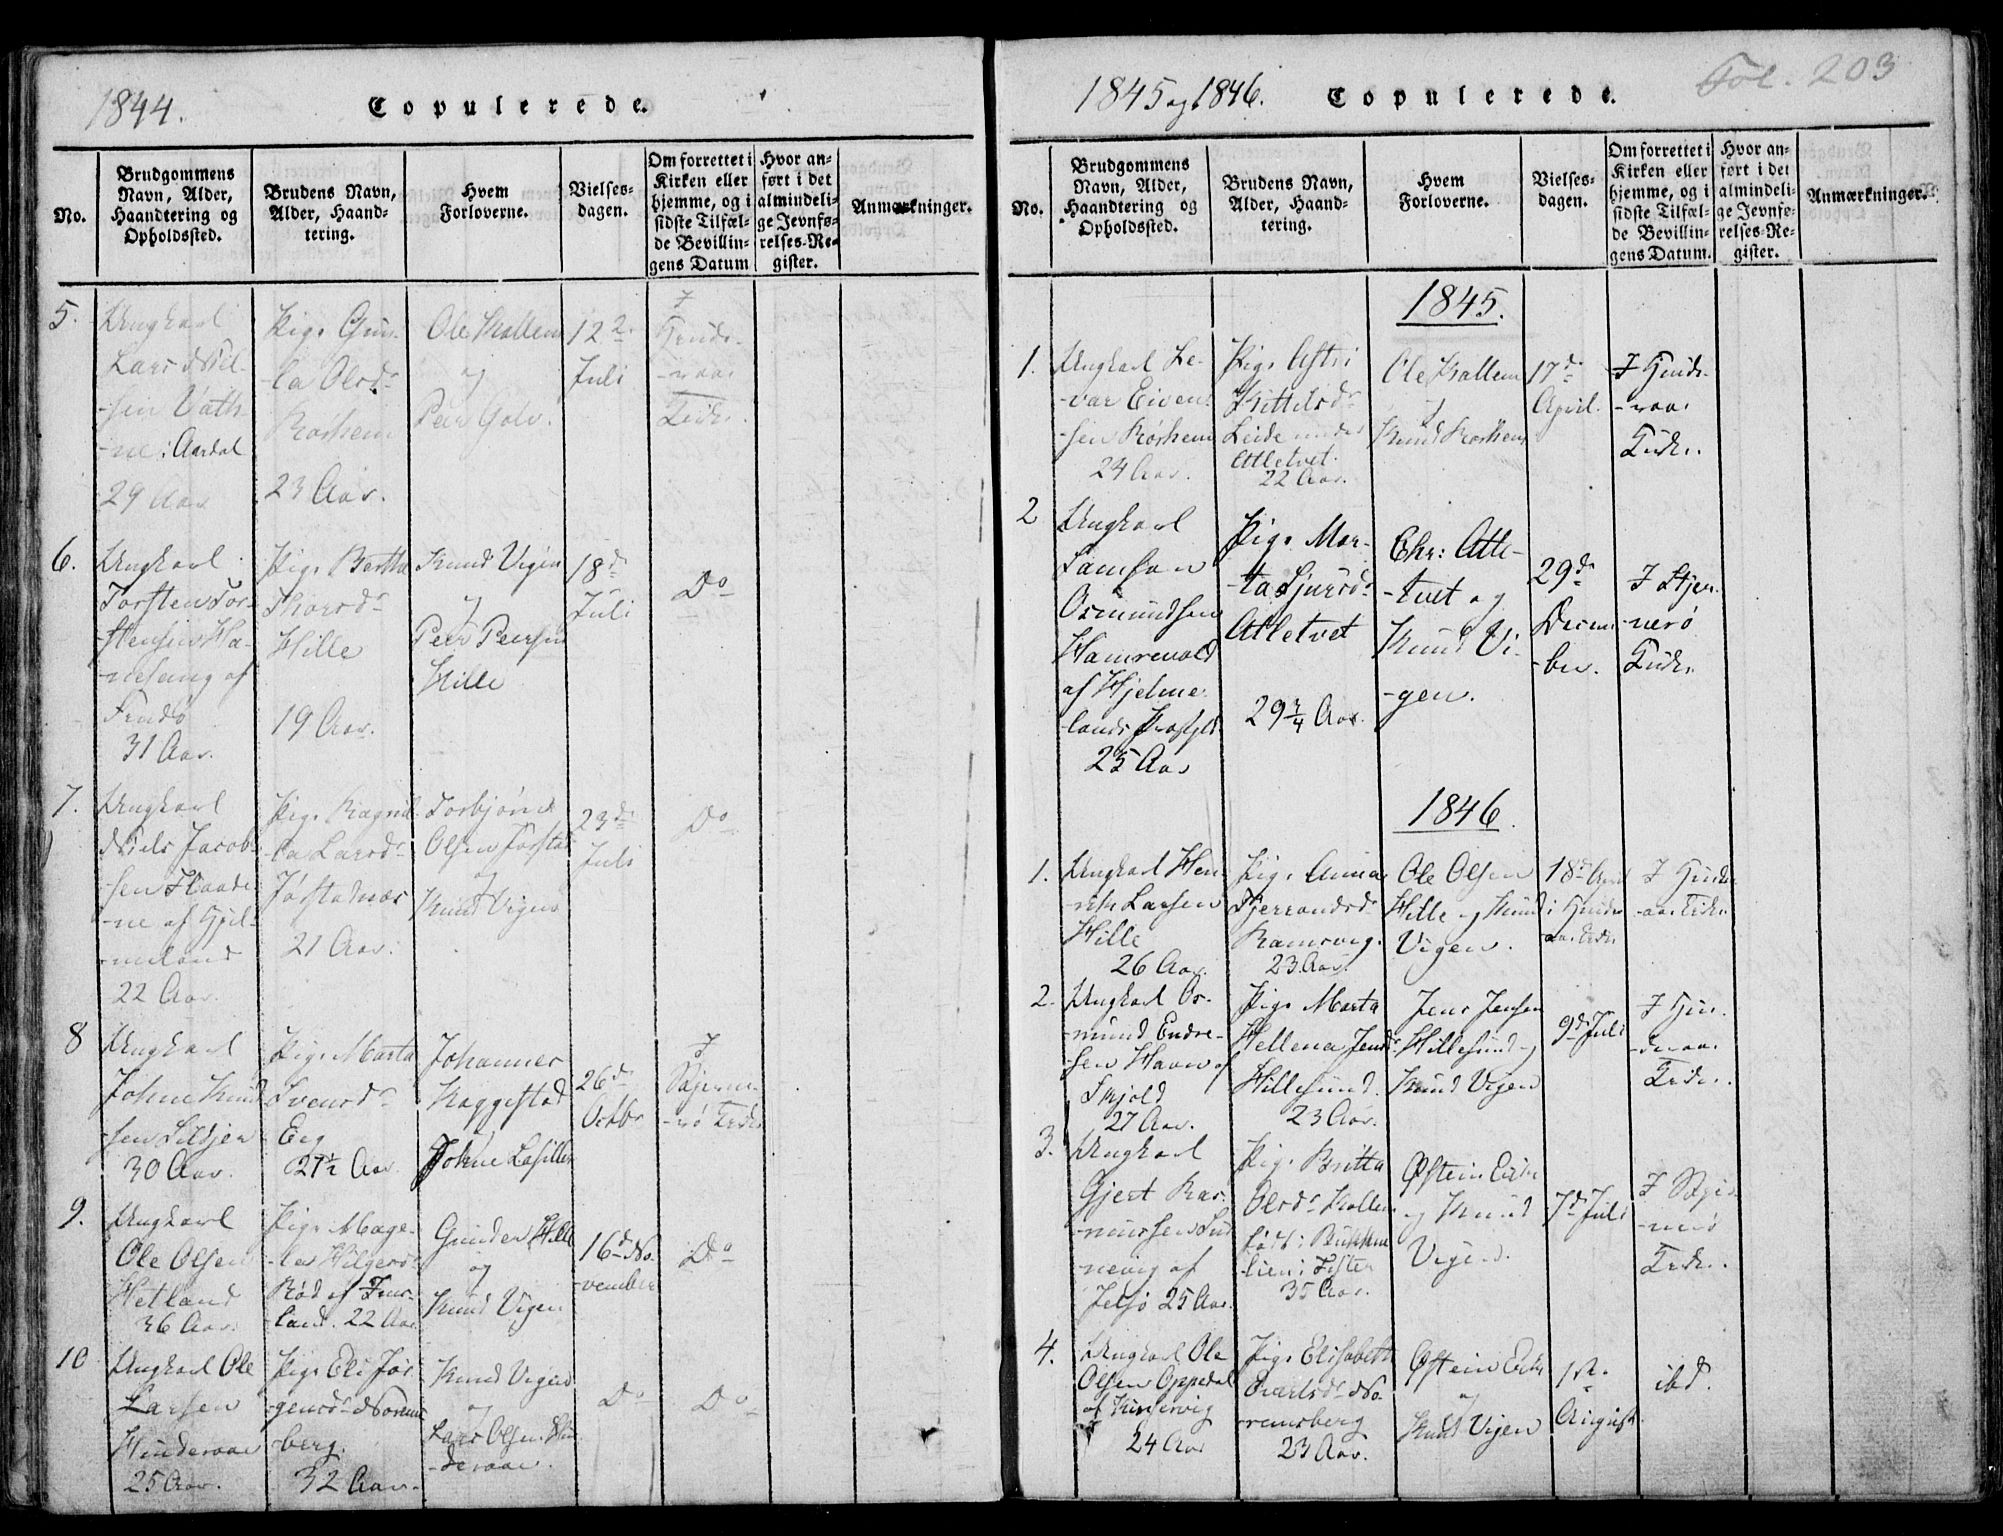 1844.
Copulerede.
No.
Brudgommens
Navn, Alder,
Haandtering og
Opholdssted.
Brudens Navn,
Alder, Haand-
tering.
Hvem
Forloverne.
Vielses-
dagen.
Om forrettet i
Kirken eller
hjemme, og i
sidste Tilfæl-
de Bevillin-
gens Datum
Hvor an-
ført i det
almindeli-
ge Jevnfø-
relses-Re-
gister.
Anmærkninger.
5.
Ungkarl
Lars Niel-
-sen Vath-
-ne i Aardal
29 Aar
Pige Gun-
-la Olsdr
Roshem
23 Aar.
Ole Kallem
og
Peer Golv.
12te
Juli
I
Hinde-
-raae
Kirke.
6.
Ungkarl
Torsten Tor-
-stensen Ha-
af
Findø
31 Aar.
Pige Bertha
Thorsdr
Hille
19 Aar.
Knud Vigen
og
Peer Peersen
Hille
18de
Juli
Do
7.
Ungkarl
Niels Jacob-
-sen Haade-
-ne af Hjel-
-meland
22 Aar.
Pige Ragnil-
-la Larsdr
Jøstadnes
21 Aar.
Torbjørn
Olsen Jøstad
og
Knud Vigen
23de
Juli
Do
8
Ungkarl
Johne Knud
-sen Lildjen
30 Aar.
Pige Marta
Svensdr
Eeg
27½ Aar
Johannes
Kaggestad
Johne
26de
Octbr
I
Skjerne-
-rø Kirke
9.
Ungkarl
Ole Olsen
Hetland
36 Aar.
Pige Mage-
-la Hilgersdr
Rød af Fins-
-land. 22 Aar
Gunder Hille
og
Knud Vigen
16de No-
-vember
Do
10
Ungkarl Ole
Larsen
Hinderaae
25 Aar.
Pige Eli Jør-
-gensdr Norums-
-berg.
32 Aar.
Knud Vigen
og
Lars Olsen Hin-
-deraae.
Do
Do
1845 og 1846.
Copulerede.
Fol. 203
No.
Brudgommens
Navn, Alder,
Haandtering og
Opholdssted.
Brudens Navn,
Alder, Haand-
tering.
Hvem
Forloverne.
Vielses-
dagen.
Om forrettet i
Kirken eller
hjemme, og i
sidste Tilfæl-
de Bevillin-
gens Datum.
Hvor an-
ført i det
almindeli-
ge Jevnfø-
relses-Re-
gister.
Anmærkninger.
1845.
1.
Ungkarl Le-
-var Eivend-
-sen Røshem
24 Aar.
Pige Astri
Kittelsdr
Leide under
Atletvet.
22 Aar.
Ole Kallem
og
Knud Roshem
17de
April.
I Hinde-
-raae
Kirke.
2
Ungkarl
Samson
Osmundsen
Hamrevold
af Hjelme-
lands Præstgld
25 Aar
Pige Mar-
-ta Sjursdr
Atletvet
29¾ Aar.
Chr: Atle-
-tvet og
Knud Vi-
-gen.
29de
Decem-
-ber.
I Skjer-
-nerø
Kirke
1846.
1.
Ungkarl Hen-
-rik Larsen
Hille
26 Aar.
Pige Anna
Tjerrandsdr
Ramsvig.
23 Aar.
Ole Olsen
Hille og Knud
Vigen.
18de April
i Hinder-
aae Kirke
I Hinder-
-aae Kirke
2.
Ungkarl Os-
-mund Endre-
-sen Haavn af
Skjold
27 Aar.
Pige Marta
Hellena Jensdr
Hillesund.
23 Aar.
Jens Jensen
Hillesund og
Knud Vigen
9de Juli
I Hin-
-deraae
Kirke.
3.
Ungkarl
Gjert Ras-
-mussen
af
Jelsø 25 Aar.
Pige Britta
Olsdr Kallem
født i
i Fister
35 Aar.
Østein Eike
og Knud
Vigen.
7de Juli
I Skjer-
-nerø
Kirke.
4.
Ungkarl Ole
Olsen Oppedal
af Kinservig
24 Aar
Pige Elisabeth
Evertsdr No-
-rumsberg
23 Aar.
Østein Eike
og
Knud Vigen
1ste
August.
ibd.